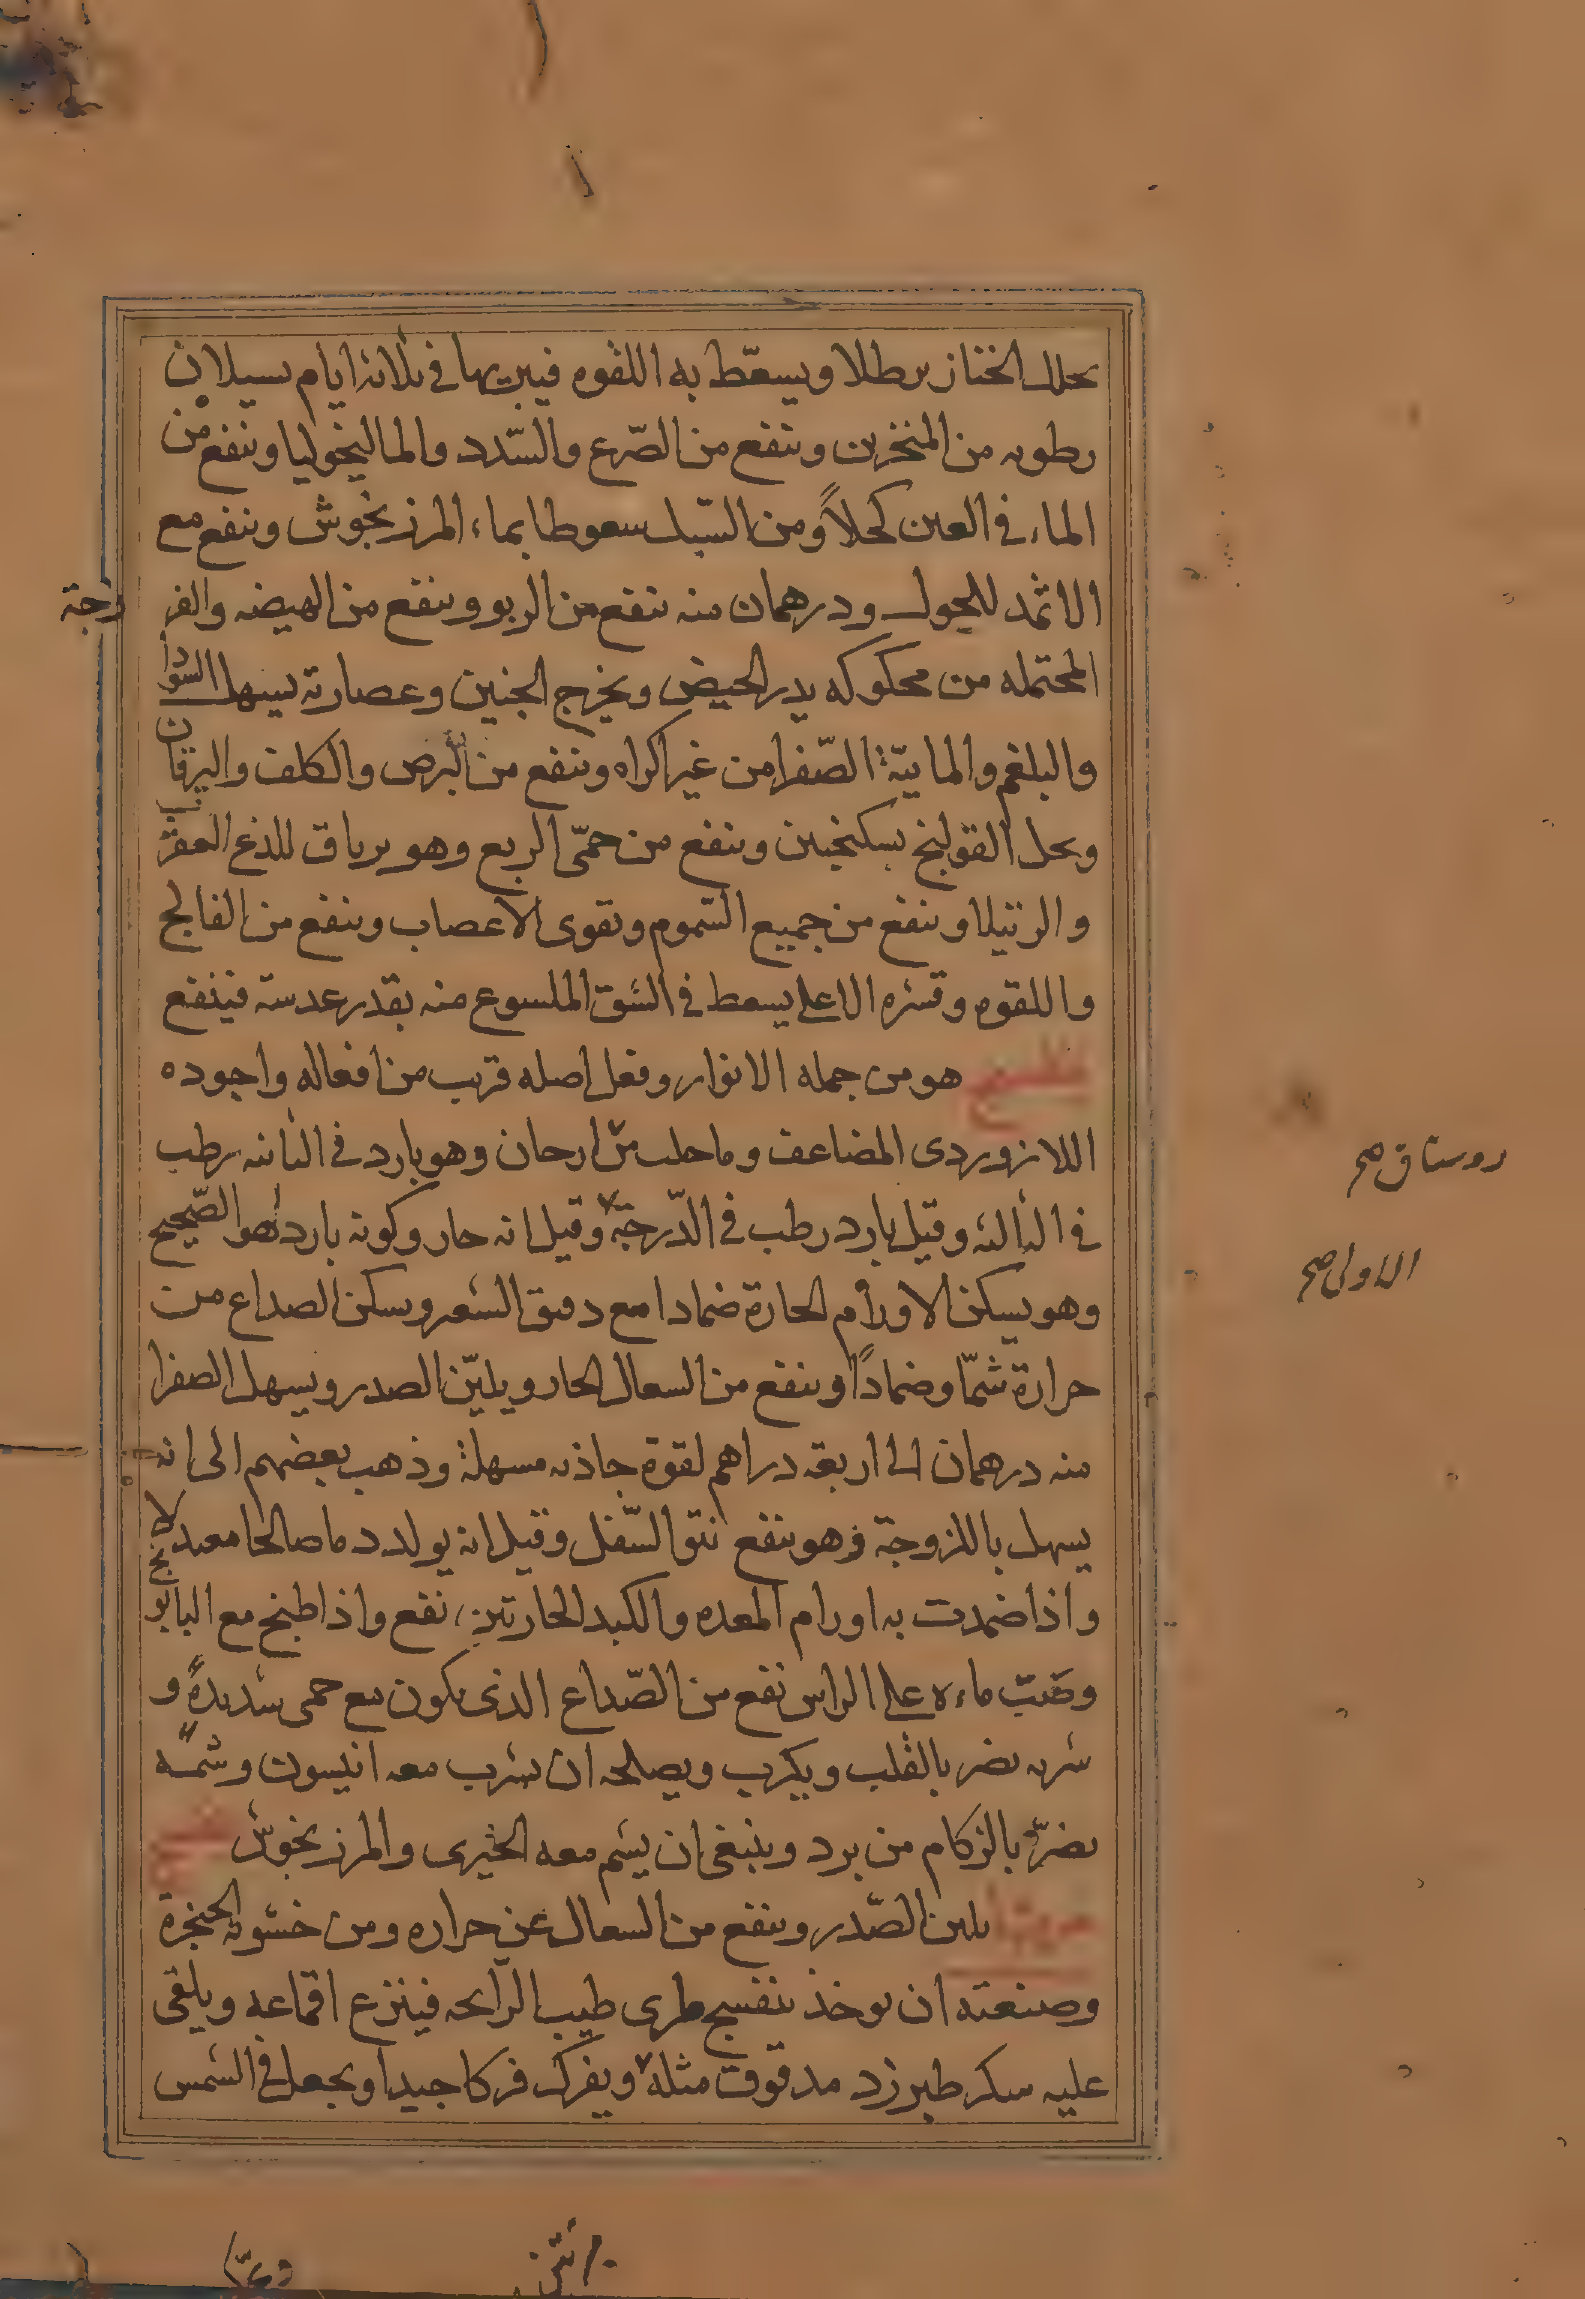 يحلل الخنازير طلا ويسعّط به اللقوه فيبريها فى ثلاثة ايام بسيلان
رطوبه من المنخرين وينفع من الصّرع والسّدد والماليخوليا وينفع من
الماء فى العين كحلاً ومن السّبل سعوطا بماء المرزنجوش وينفع مع
الاثمد للحول ودرهمان منه ينفع من الربو وينفع من الهيضه والفر
زجة
المحتمله من محكوكه يدر الحيض ويخرج الجنين وعصارته يسهل السودا
والبلغم والمائيّة الصّفرا من غير اكراه وينفع من البرص والكلف واليرقان
ويحل القولنج بسكنجبين وينفع من حمّى الربع وهو ترياق للذع العقرب
والرتيلا وينفع من جميع السّموم ويقوى الاعصاب وينفع من الفالج
واللقوه وقشره الاعلى يسعط فى الشق الملسوع منه بقدر عدسة فينفع
هو من جمله الانوار وفعل اصله قريب من افعاله واجوده
اللازوردى المضاعف وما جلب من ارجان وهو بارد فى الثانيه رطب
روستاق صح
فى الثالثه وقيل بارد رطب فى الدّرجة وقيل انه حار وكونه باردا هو الصّحيح
الاولى صح
وهو يسكن الاورام الحارة ضمادا مع دقيق الشعير ويسكن الصداع من
حرارة شمّا وضماداً وينفع من السعال الحار ويليّن الصدر ويسهل الصفرا
منه درهمان الى اربعة دراهم لقوة جاذبه مسهلة وذهب بعضهم الى انه
يسهل باللزوجة وهو ينفع نتو السّفل وقيل انه يولد دما صالحا معتدلا
واذا ضمدت به اورام المعده والكبد الحارتين نفع واذا طبخ مع البابونج
وصّب ماءه على الراس نفع من الصّداع الذى يكون مع حمى شديدة و
شربه يضر بالقلب ويكرب ويصلحه ان يشرب معه انيسون وشمّه
يضرّ بالزكام من برد وينبغى ان يشم معه الخيرى والمرزنجوش
يلين الصّدر وينفع من السعال عن حراره ومن خشونه الحنجرة
وصنعته ان يوخذ بنفسج طرى طيب الرايحه فينزع اقماعه ويلقى
عليه سكر طبرزد مدقوق مثله ويفرك فركا جيدا ويجعل فى الشمس